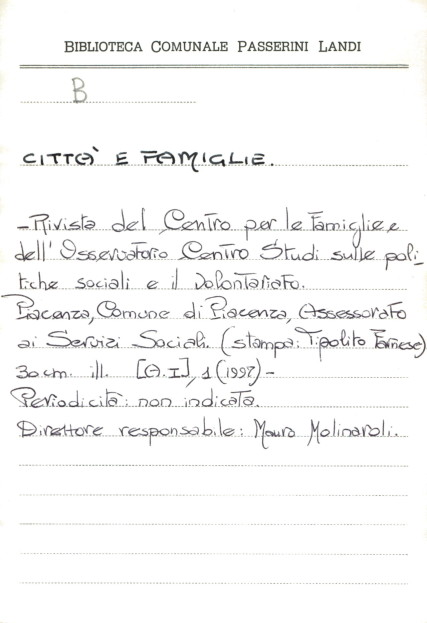 BIBLIOTECA COMUNALE PASSERINI LANDI
B
CITTÀ E FAMIGLIE.
- Rivista del Centro per le Famiglie e
dell'Osservatorio Centro Studi sulle poli-
tiche sociali e il volontariato.
Piacenza, Comune di Piacenza, Assessorato
ai Servizi Sociali. (stampa: Tipolito Farnese)
30 cm. ill. [A.I], 1 (1997) -
Periodicità: non indicata.
Direttore responsabile: Mauro Molinaroli.